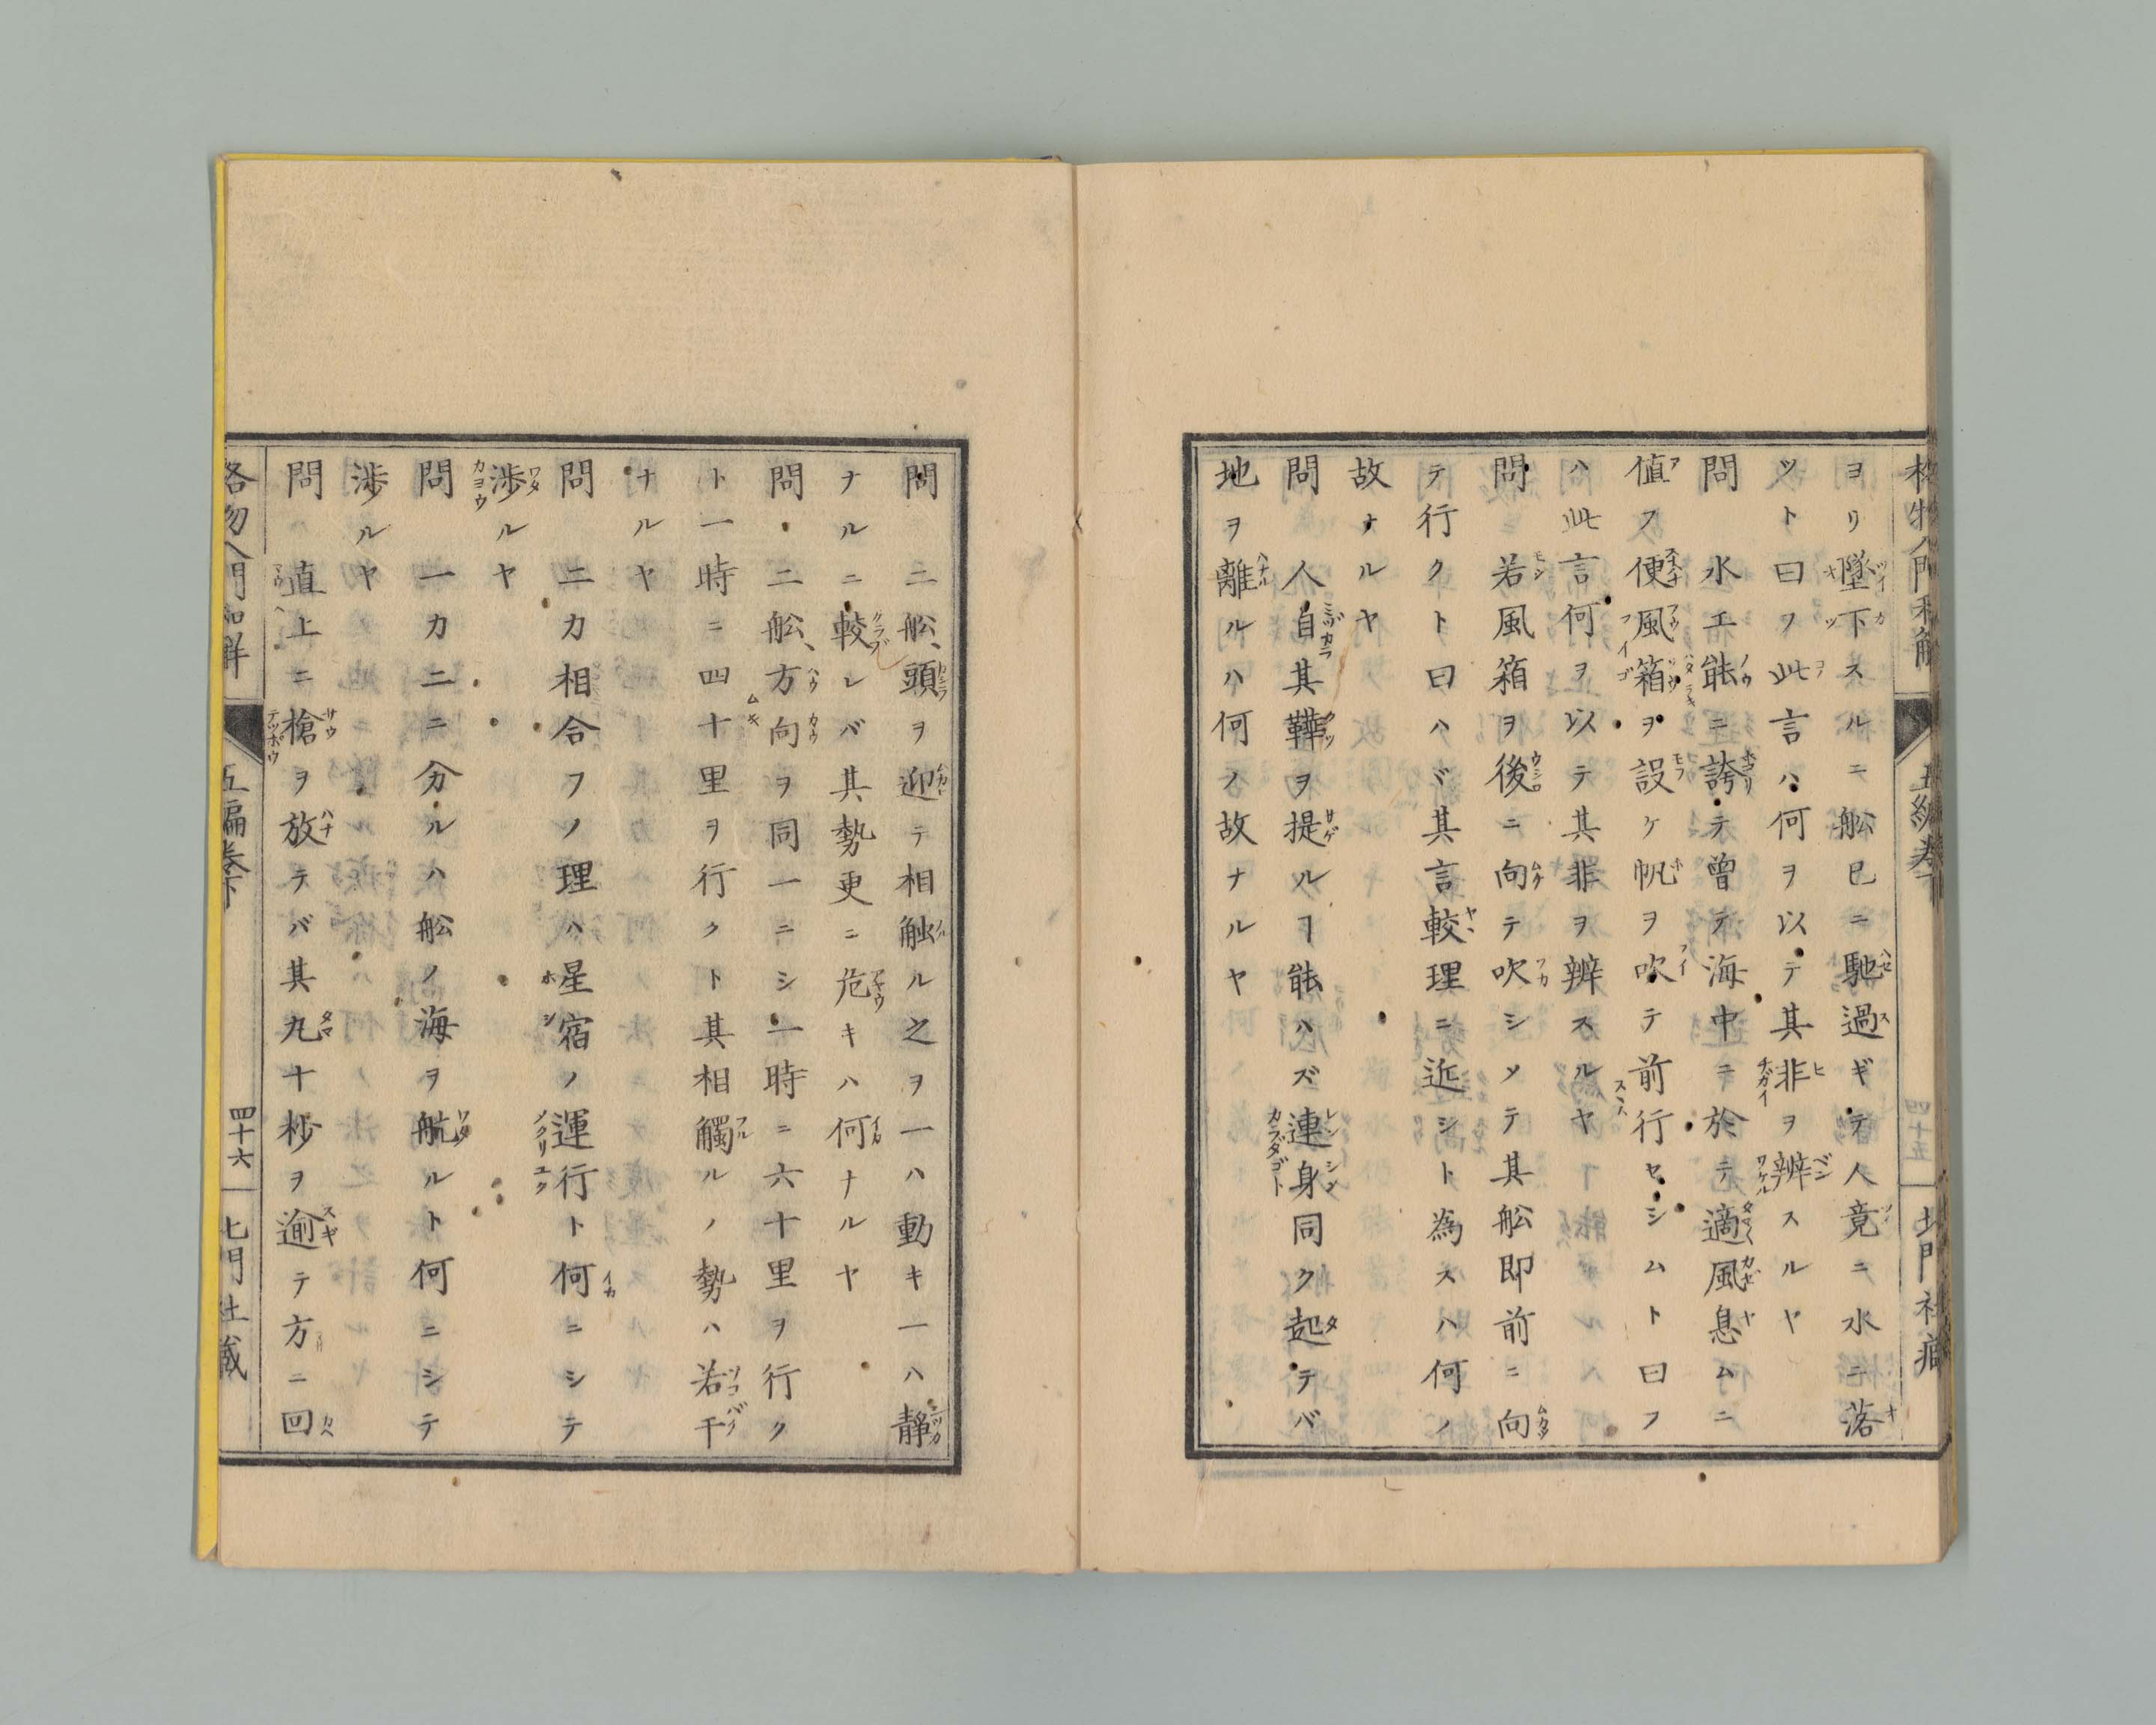 格物入門和解 五編巻下 四十五 北門社蔵
ヨリ墜下スルニ舩已ニ馳過ギテ人竟ニ水ニ落
ツト曰フ此言ハ何ヲ以テ其非ヲ辨スルヤ
問 水工能ニ誇テ曾テ海中ニ於テ適風息ムニ
値フ便風箱ヲ設ケ帆ヲ吹テ前行セシムト曰フ
ハ此言何ヲ以テ其非ヲ辨スルヤ
問 若風箱ヲ後ニ向テ吹シメテ其舩即前ニ向
テ行クト曰ハヾ其言較理ニ近シト為スハ何ノ
故ナルヤ
問 人自其鞾ヲ提ルヿ能ハズ連身同ク起テバ
地ヲ離ルハ何ノ故ナルヤ
問 二舩、頭ヲ迎テ相触ル之ヲ一ハ動キ一ハ靜
ナルニ較レバ其勢更ニ危キハ何ナルヤ
問 二舩、方向ヲ同一ニシ一時ニ六十里ヲ行ク
ト一時ニ四十里ヲ行クト其相觸ルノ勢ハ若干
ナルヤ
問 二力相合フノ理ハ星宿ノ運行ト何ニシテ
渉ルヤ
問 一力二ニ分ルハ舩ノ海ヲ航ルト何ニシテ
渉ルヤ
問 直上ニ槍ヲ放テバ其丸十秒ヲ逾テ方ニ回
格物入門和解 五編巻下 四十六 北門社蔵